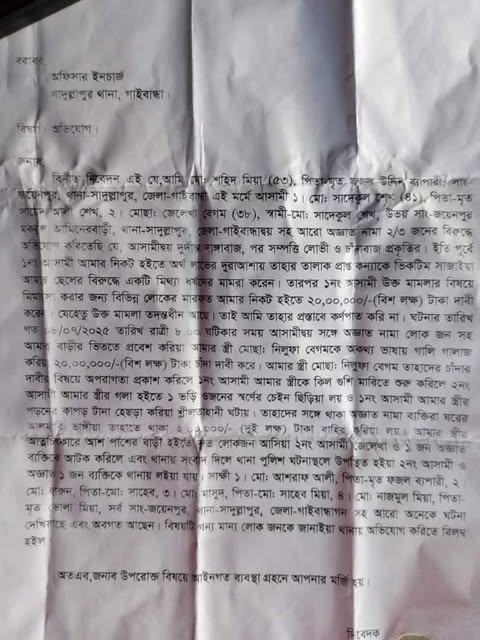 বরাবর,
অফিসার ইনচার্জ
সাদুল্লাপুর থানা, গাইবান্ধা।
বিষয়: অভিযোগ।
জনাব
বিনীত নিবেদন এই যে,আমি মো: শহিদ মিয়া (৫৩), পিতা-মৃত ফজল উদ্দিন ব্যাপারী, সাং-
জয়েনপুর, থানা-সাদুল্লাপুর, জেলা-গাইবান্ধা এই মর্মে আসামী ১। মো: সাদেকুল শেখ (৪১), পিতা-মৃত
আলী শেখ, ২। মোছা: জেলেখা বেগম (৩৮), স্বামী-মো: সাদেকুল শেখ, উভয় সাং-জয়েনপুর
আমিনেরবাড়ী, থানা-সাদুল্লাপুর, জেলা-গাইবান্ধাদ্বয় সহ আরো অজ্ঞাত নামা ২/৩ জনের বিরুদ্ধে
অভিযোগ করিতেছি যে, আসামীদ্বয় দুর্দান্ত দাঙ্গাবাজ, পর সম্পত্তি লোভী ও চাঁদাবাজ প্রকৃতির। ইতি পূর্বে
১নং আসামী আমার নিকট হইতে অর্থ লাভের দুরাশায় তাহার তালাক প্রাপ্ত কন্যাকে ভিকটিম সাজাইয়া
আমার ছেলের বিরুদ্ধে একটি মিথ্যা ধর্ষনের মামরা করেন। তারপর ১নং আসামী উক্ত মামলার বিষয়ে
মিমাংসা করার জন্য বিভিন্ন লোকের মারফত আমার নিকট হইতে ২০,০০,০০০/-(বিশ লক্ষ) টাকা দাবী
করেন। যেহেতু উক্ত মামলা তদন্তধীন আছে। তাই আমি তাহার প্রস্তাবে কর্ণপাত করি না। ঘটনার তারিখ
গত ০৮/০৭/২০২৫ তারিখ রাত্রী ৮.০০ ঘটিকার সময় আসামীদ্বয় সঙ্গে অজ্ঞাত নামা লোক জন সহ
আমার বাড়ীর ভিততে প্রবেশ করিয়া আমার স্ত্রী মোছা: নিলুফা বেগমকে অকথ্য ভাষায় গালি গালাজ
করিয়া ২০,০০,০০০/-(বিশ লক্ষ) টাকা চাঁদা দাবী করে। আমার স্ত্রী মোছা: নিলুফা বেগম তাহাদের চাঁদার
দাবীর বিষয়ে অপরাগতা প্রকাশ করিলে ১নং আসামী আমার স্ত্রীকে কিল গুশি মারিতে শুরু করিলে ২নং
আসামী আমার স্ত্রীর গলা হইতে ১ ভড়ি ওজনের স্বর্ণের চেইন ছিড়িয়া লয় ও ১নং আসামী আমার স্ত্রীর
পড়নের কাপড় টানা হেছড়া করিয়া শ্রীলতাহানী ঘটায়। তাহাদের সঙ্গে থাকা অজ্ঞাত নামা ব্যক্তিরা ঘরের
ভাঙ্গীয়া তাহাতে থাকা ২,০০,০০০/- (দুই লক্ষ) টাকা বাহির করিয়া লয়। আমার স্ত্রীর
আত্মচিৎকারে আশ পাশের বাড়ী হইতে লোকজন আসিয়া ২নং আসামী জেলেখা ও ১ জন অজ্ঞাত
ব্যক্তিকে আটক করিলে এবং থানায় সংবাদ দিলে থানা পুলিশ ঘটনাস্থলে উপস্থিত হইয়া ২নং আসামী ও
অজ্ঞাত ১ জন ব্যক্তিকে থানায় লইয়া যায়। সাক্ষী ১। মো: আশরাফ আলী, পিতা-মৃত ফজল ব্যাপারী, ২।
মো: পিতা-মো: সাহেব, ৩। মো: মাসুদ, পিতা-মো: সাহেব মিয়া, ৪। মো: নাজমুল মিয়া, পিতা-
মৃত ভোলা মিয়া, সর্ব সাং-জয়েনপুর, থানা-সাদুল্লাপুর, জেলা-গাইবান্ধাগন সহ আরো অনেকে ঘটনা
দেখিয়াছে এবং অবগত আছেন। বিষয়টি গন্য মান্য লোক জনকে জানাইয়া থানায় অভিযোগ করিতে বিলম্ব
হইল।
অতএব,জনাব উপরোক্ত বিষয়ে আইনগত ব্যবস্থা গ্রহনে আপনার মর্জি হয়।
নিবেদক